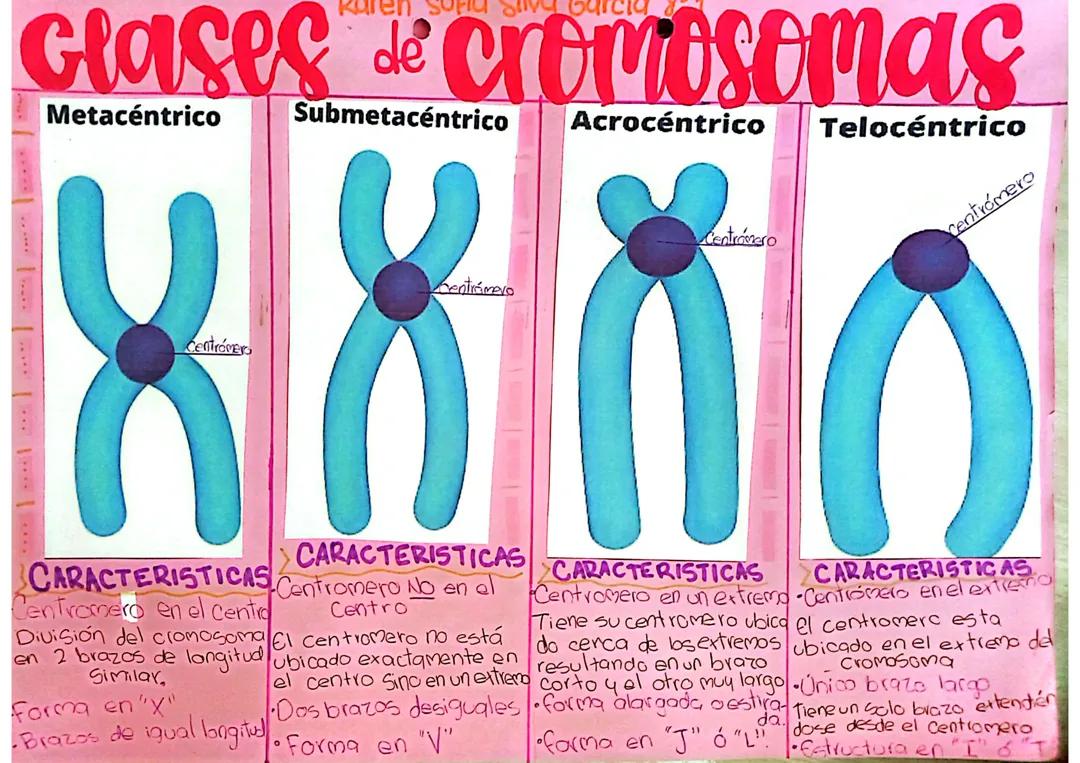 Karen Sofia Silva Garcia 8°1
Clases de cromosomas
Metacéntrico
Centrómero
CARACTERISTICAS
Centromero en el Centro
División del cromosoma
en 2 brazos de longitud
similar.
Forma en "X"
•Brazos de igual longitud
Submetacéntrico
Centrómero
CARACTERISTICAS
•Centromero NO en el
Centro
El centromero no está
ubicado exactamente en
el centro sino en un extremo
•Dos brazos desiguales
•Forma en "V"
Acrocéntrico
Centrómero
CARACTERISTICAS
•Centromero en un extremo
Tiene su centromero ubica
do cerca de los extremos
resultando en un brazo
corto y el otro muy largo
•forma alargada o estira-
da.
•forma en "J" ó "L".
Telocéntrico
Centrómero
CARACTERISTICAS
•Centrómero en el extremo
el centromero esta
ubicado en el extremo del
cromosoma
•Único brazo largo
Tiene un solo brazo extendién
dose desde el centromero
•Estructura en "I" ó "T